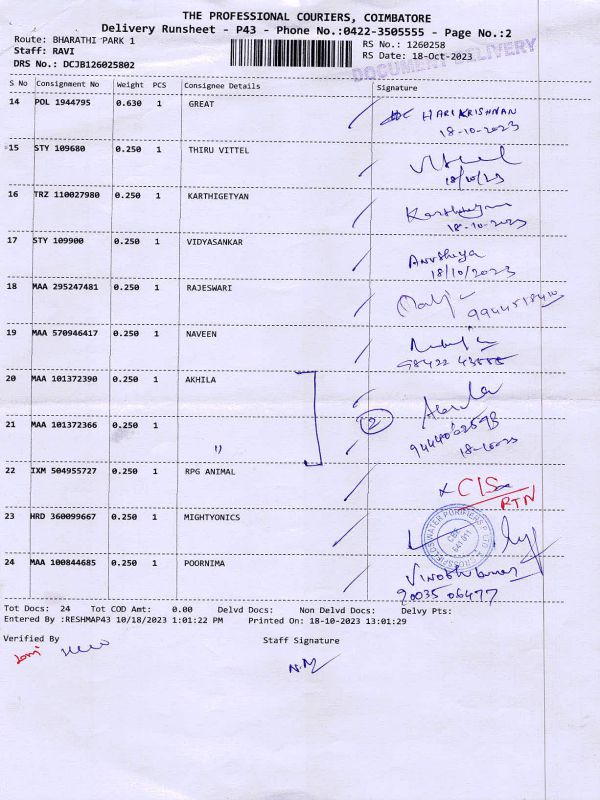 THE PROFESSIONAL COURIERS, COIMBATORE
Delivery Runsheet - P43 - Phone No.:0422-3505555 - Page No.:2
Route: BHARATHI PARK 1 RS No.: 1260258
Staff: RAVI RS Date: 18-Oct-2023
DRS No.: DCJB126025802 DOCUMENT DELIVERY
S No Consignment No Weight PCS Consignee Details Signature
14 POL 1944795 0.630 1 GREAT HARIKRISHNAN
18-10-2023
15 STY 109680 0.250 1 THIRU VITTEL
18/10/23
16 TRZ 110027980 0.250 1 KARTHIGETYAN
18-10-2023
17 STY 109900 0.250 1 VIDYASANKAR Anushiya
18/10/2023
18 MAA 295247481 0.250 1 RAJESWARI
19 MAA 570946417 0.250 1 NAVEEN
98422
20 MAA 101372390 0.250 1 AKHILA
2
21 MAA 101372366 0.250 1 "
22 IXM 504955727 0.250 1 RPG ANIMAL
RTN
23 HRD 360099667 0.250 1 MIGHTYONICS
24 MAA 100844685 0.250 1 POORNIMA Vinothkumar
90035 06477
Tot Docs: 24 Tot COD Amt: 0.00 Delvd Docs: Non Delvd Docs: Delvy Pts:
Entered By :RESHMAP43 10/18/2023 1:01:22 PM Printed On: 18-10-2023 13:01:29
Verified By Staff Signature